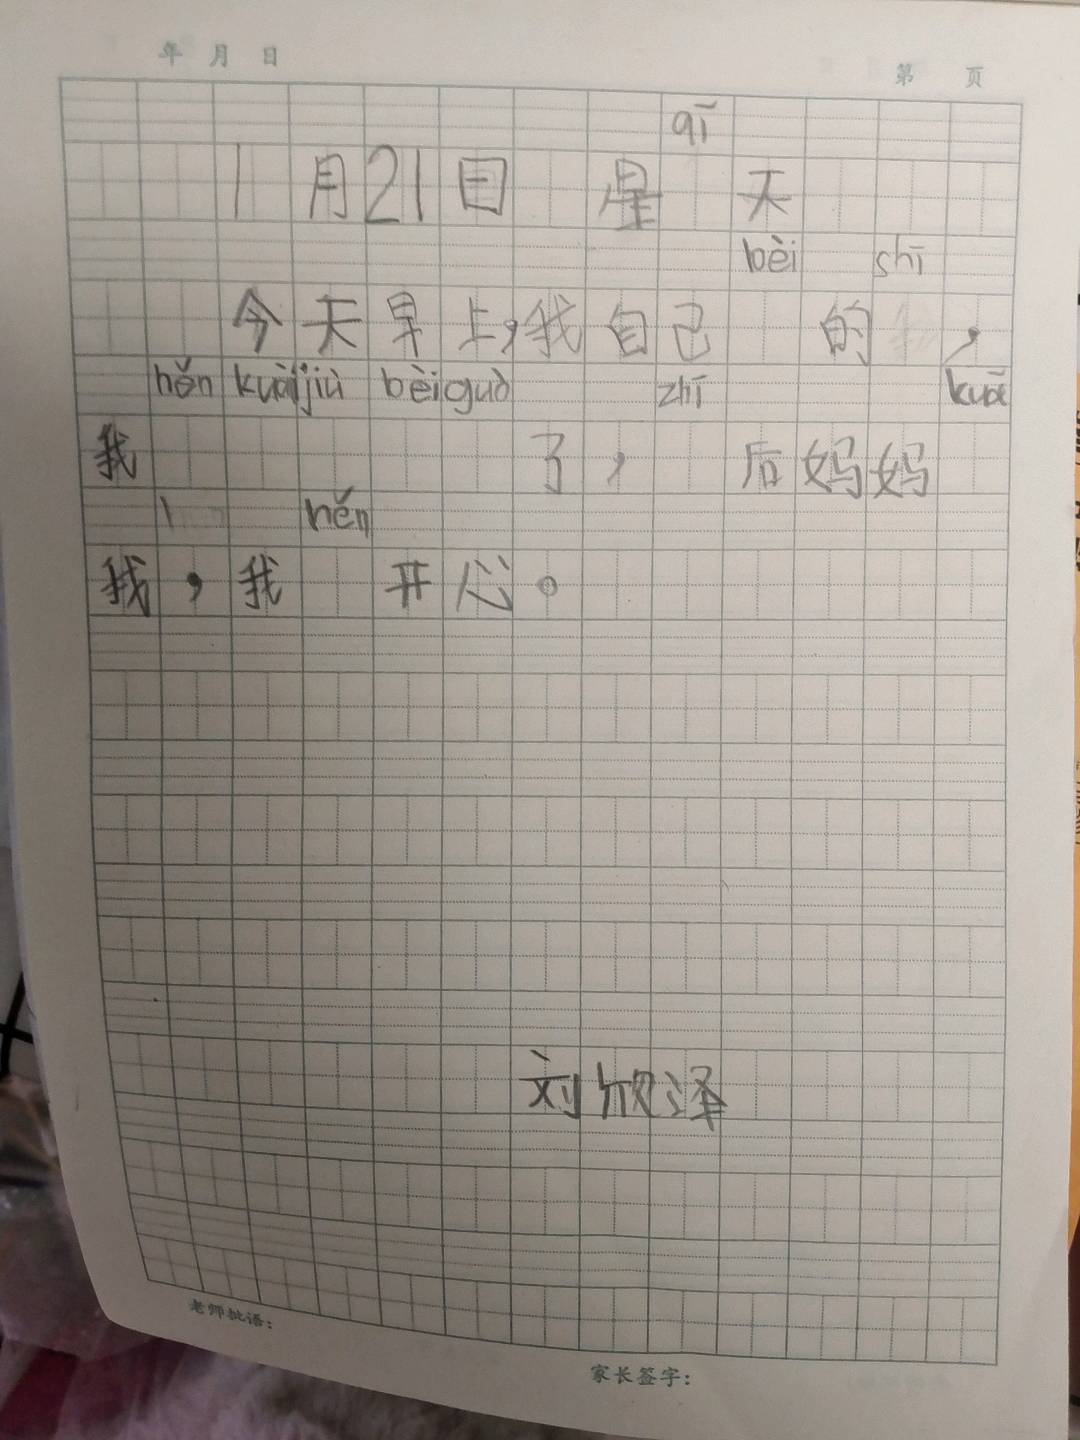 年 月 日
第 页
qī
1月21日 星 天
bèi shī
今天早上,我自己 的 ,
hěn kuài jiù bèi guò zhī kuā
我 了, 后妈妈
hěn
我,我 开心。
刘欣泽
老师批语:
家长签字: